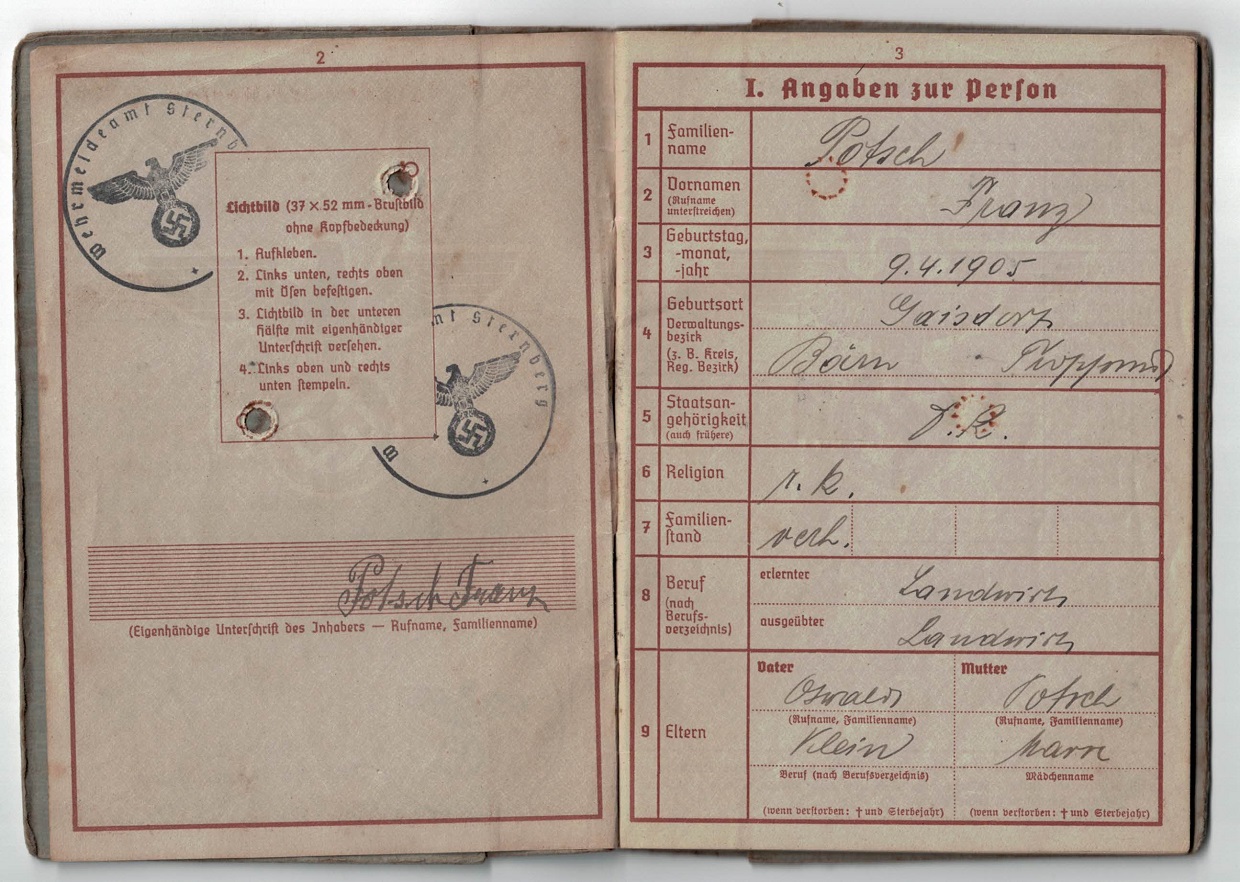 2
Wehrmeldeamt Sternb
Lichtbild (37 × 52 mm - Brustbild
ohne Kopfbedeckung)
1. Aufkleben.
2. Links unten, rechts oben
mit Ösen befestigen.
3. Lichtbild in der unteren
Hälfte mit eigenhändiger
Unterschrift versehen.
4. Links oben und rechts
unten stempeln.
W mt Sternberg
Potsch Franz
(Eigenhändige Unterschrift des Inhabers — Rufname, Familienname)
3
I. Angaben zur Person
1 Familien-
name
Potsch
2 Vornamen
(Rufname
unterstreichen)
Franz
3 Geburtstag,
-monat,
-jahr
9.4.1905
4 Geburtsort
Verwaltungs-
bezirk
(z. B. Kreis,
Reg. Bezirk)
Gaisdorf
Bärn Troppau
5 Staatsan-
gehörigkeit
(auch frühere)
D.R.
6 Religion
r. k.
7 Familien-
stand
verh.
8 Beruf
(nach
Berufs-
verzeichnis)
erlernter Landwirt
ausgeübter Landwirt
9 Eltern
Vater Mutter
Oswald Potsch
(Rufname, Familienname) (Rufname, Familienname)
Klein
Beruf (nach Berufsverzeichnis) Mädchenname
(wenn verstorben: † und Sterbejahr) (wenn verstorben: † und Sterbejahr)